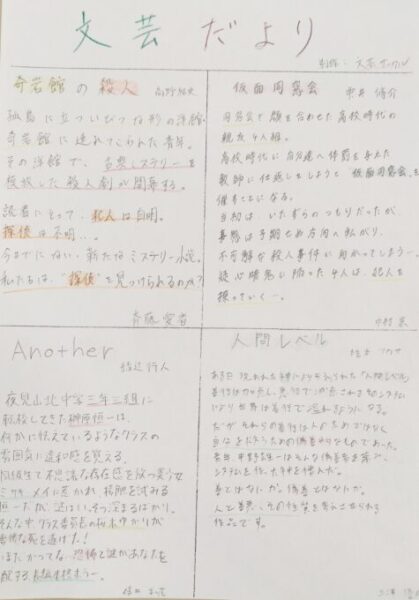 文芸だより
制作:文芸サークル
奇岩館の殺人
高野結史
孤島に立ついびつな形の洋館、
奇岩館に連れてこられた青年。
その洋館で、古典ミステリーを
模倣した殺人劇が開幕する。
読者にとって、犯人は自明。
探偵は不明…。
今までにない、新たなミステリー小説。
私たちは、"探偵"を見つけられるのか?
斉藤愛香
仮面同窓会
雫井脩介
同窓会で顔を合わせた高校時代の
親友4人組。
高校時代に自分達へ体罰を与えた
教師に仕返しをしようと仮面同窓会を
催すことになる。
当初は、いたずらのつもりだったが、
事態は予期せぬ方向へ転がり、
不可解な殺人事件に向かってしまう…。
疑心暗鬼に陥った4人は、犯人を
探っていく…。
中村
Another
綾辻行人
夜見山北中学三年三組に
転校してきた榊原恒一は、
何かに怯えているようなクラスの
雰囲気に違和感を覚える。
同級生で不思議な存在感を放つ美少女
ミサキ・メイに惹かれ、接触を試みる
恒一だが、謎はいっそう深まるばかり。
そんな中、クラス委員長の桜木ゆかりが
悲惨な死を遂げた!
いまだかつてない恐怖と謎があなたを
魅了する、長編本格ホラー。
人間レベル
ある日、現われた神により与えられた「人間レベル」
善行は力を与え、悪行で
により世界は善行で溢れるようになる。
だが、それらの善行は人のためではなく
自分をよくみせるための偽善的なものであった。
主人公・中野
システムを作った神を憎んだ。
善とはなにか。偽善とはなにか。
人と善悪、その在り方を考えさせられる
作品です。